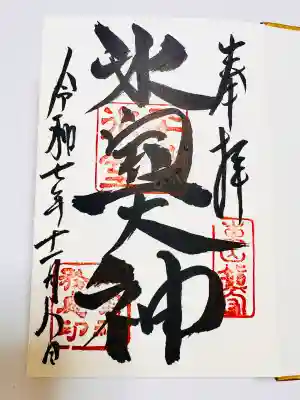 奉拝
氷室大神
令和七年十一月八日